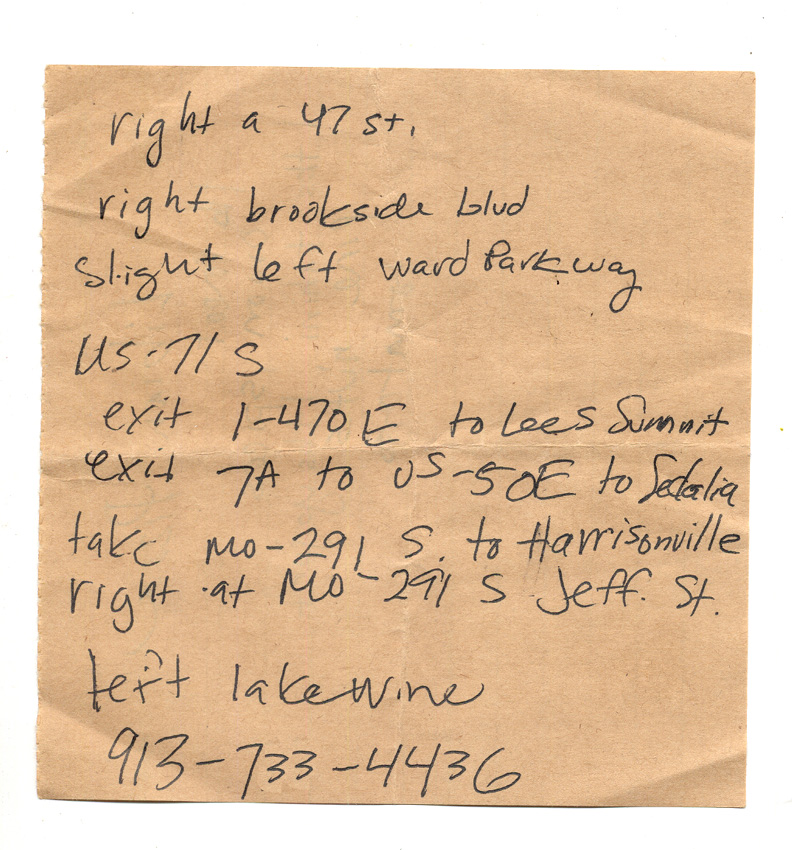 right a 47 st.
right brookside blvd
Slight left ward Parkway
US-71 S
exit 1-470 E to Lees Summit
exit 7A to US-50E to Sedalia
take MO-291 S. to Harrisonville
right at MO-291 S Jeff. St.
left lakewine
913-733-4436